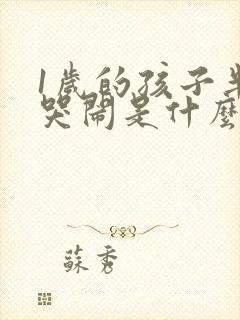 1歲的孩子半
哭鬧是什麼
蘇秀